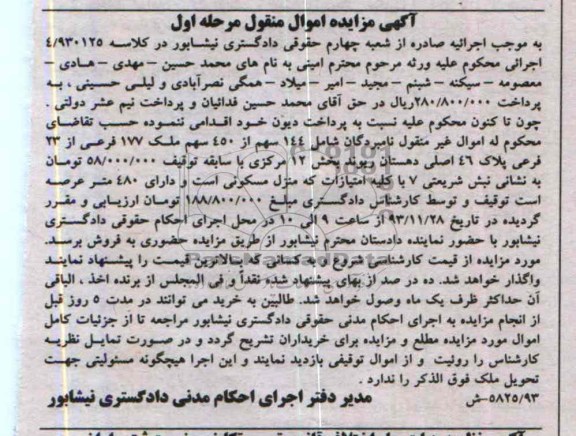 آگهی مزایده اموال منقول مرحله اول
به موجب اجرائیه صادره از شعبه چهارم حقوقی دادگستری نیشابور در کلاسه ۴/۹۳۰۱۲۵
اجرائی محکوم علیه ورثه مرحوم محترم امینی به نام های محمد حسین – مهدی – هادی –
معصومه – سکینه – شبنم – مجید – امیر – میلاد – همگی نصرآبادی و لیلی حسینی ، به
پرداخت ۲۸۰/۸۰۰/۰۰۰ریال در حق آقای محمد حسین فدائیان و پرداخت نیم عشر دولتی .
چون تا کنون محکوم علیه نسبت به پرداخت دیون خود اقدامی ننموده حسب تقاضای
محکوم له اموال غیر منقول نامبردگان شامل ۱۴۴ سهم از ۴۵۰ سهم ملک ۱۷۷ فرعی از ۲۳
فرعی پلاک ۴۶ اصلی دهستان ریوند بخش ۱۲ مرکزی با سابقه توقیف ۵۸/۰۰۰/۰۰۰ تومان
به نشانی نبش شریعتی ۷ با کلیه امتیازات که منزل مسکونی است و دارای ۴۸۰ متر عرصه
است توقیف و توسط کارشناس دادگستری مبلغ ۱۸۸/۸۰۰/۰۰۰ تومان ارزیابی و مقرر
گردیده در تاریخ ۹۳/۱۱/۲۸ از ساعت ۹ الی ۱۰ در محل اجرای احکام حقوقی دادگستری
نیشابور با حضور نماینده دادستان محترم نیشابور از طریق مزایده حضوری به فروش برسد.
مورد مزایده از قیمت کارشناسی شروع و به کسانی که بالاترین قیمت را پیشنهاد نمایند
واگذار خواهد شد. ده در صد از بهای پیشنهاد شده نقداً و فی المجلس از برنده اخذ ، الباقی
آن حداکثر ظرف یک ماه وصول خواهد شد. طالبین به خرید می توانند در مدت ۵ روز قبل
از انجام مزایده به اجرای احکام مدنی حقوقی دادگستری نیشابور مراجعه تا از جزئیات کامل
اموال مورد مزایده مطلع و مزایده برای خریداران تشریح گردد و در صورت تمایل نظریه
کارشناس را رونیت و از اموال توقیفی بازدید نمایند و این اجرا هیچگونه مسئولیتی جهت
تحویل ملک فوق الذکر را ندارد .
۵۸۲۵/۹۳-ش مدیر دفتر اجرای احکام مدنی دادگستری نیشابور